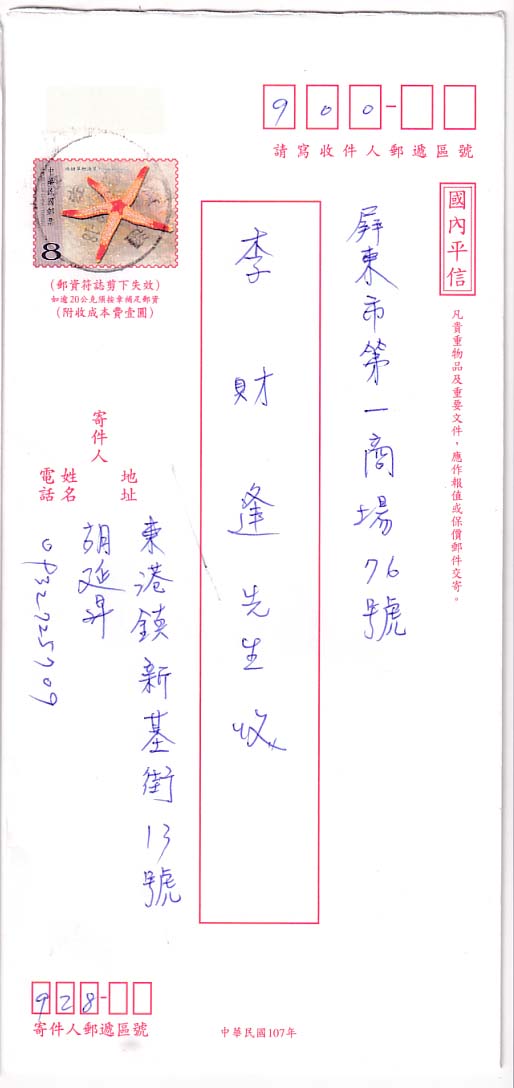 900-
請寫收件人郵遞區號
國內平信
凡貴重物品及重要文件，應作報值或保價郵件交寄。
屏東市第一商場76號
李財逢先生收
中華民國郵票
8
(郵資符誌剪下失效)
如逾20公克須按章補足郵資
(附收成本費壹圓)
寄件人
地址
東港鎮新基街13號
姓名
胡延昇
電話
0932725709
928-
寄件人郵遞區號
中華民國107年